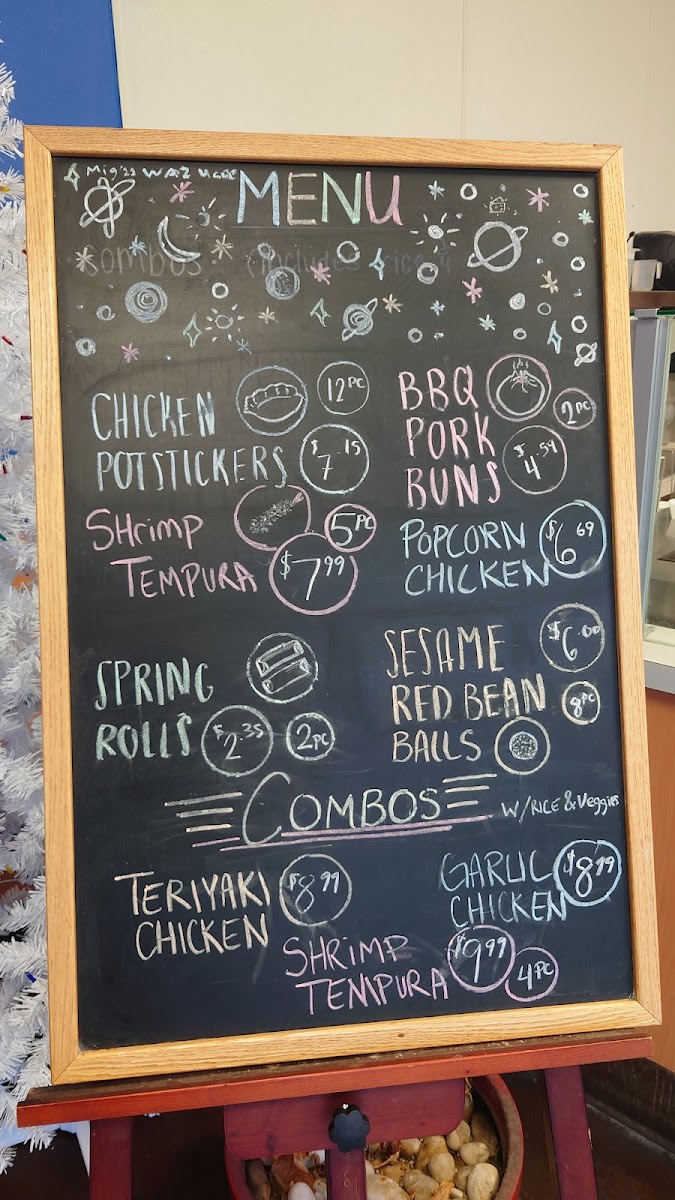 MENU
combos
CHICKEN
POTSTICKERS
12PC
$7.15
BBQ
PORK
BUNS
2PC
$4.59
SHrimp
TEMPURA
5PC
$7.99
POPCORN
CHICKEN
$6.69
SPRING
ROLLS
$2.35
2PC
SESAME
RED BEAN
BALLS
$6.00
8PC
COMBOS
W/RICE & Veggies
TERIYAKI
CHICKEN
$8.99
GARLIC
CHICKEN
$8.99
SHRIMP
TEMPURA
$9.99
4PC